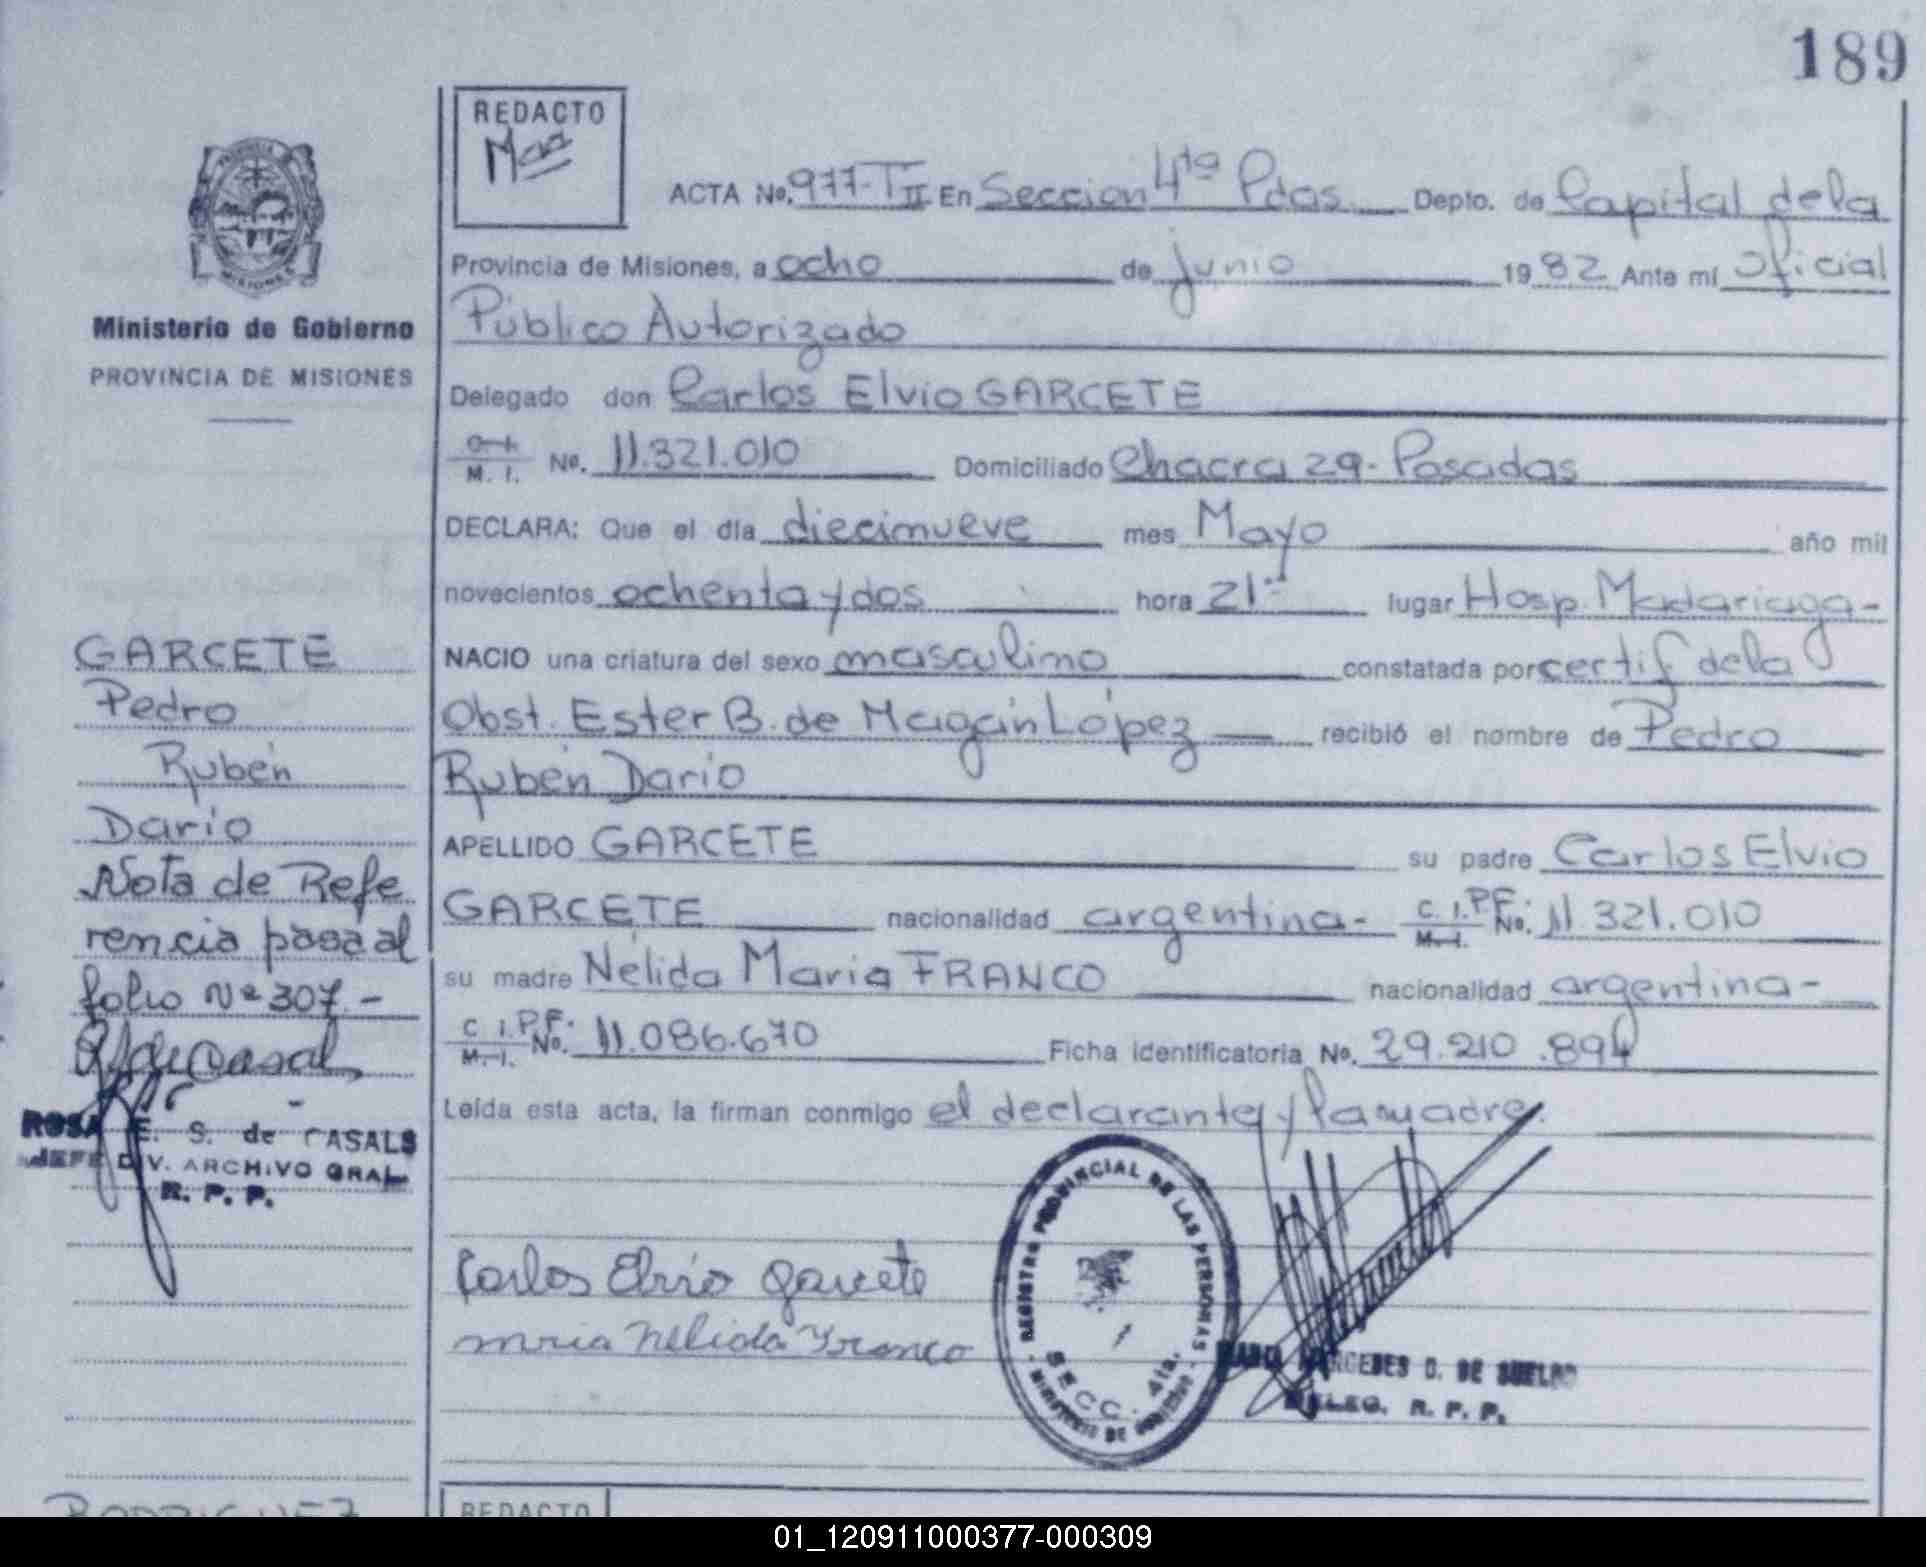 189
REDACTO
ACTA No. 977-T II En Seccion 4ta Pdas. Depto. de Capital de la
Provincia de Misiones, a ocho de junio 1982 Ante mí Oficial
Público Autorizado
Delegado don Carlos Elvio GARCETE
M. I. No. 11.321.010 Domiciliado Chacra 29- Posadas
DECLARA: Que el día diecinueve mes Mayo año mil
novecientos ochenta y dos hora 21- lugar Hosp. Madariaga-
NACIO una criatura del sexo masculino constatada por certif de la
Obst. Ester B. de Magán López recibió el nombre de Pedro
Rubén Darío
APELLIDO GARCETE su padre Carlos Elvio
GARCETE nacionalidad argentina- C. I. P.F. M. I. No. 11.321.010
su madre Nélida María FRANCO nacionalidad argentina-
C. I. P.F. M. I. No. 11.086.670 Ficha identificatoria No. 29.210.894
Leída esta acta, la firman conmigo el declarante y la madre.
Carlos Elvio Garcete
Maria Nelida Franco
REGISTRO PROVINCIAL DE LAS PERSONAS
MINISTERIO DE GOBIERNO
SECC. 4ta.
MERCEDES D. DE
DELEG. R. P. P.
PROVINCIA DE MISIONES
Ministerio de Gobierno
PROVINCIA DE MISIONES
GARCETE
Pedro
Rubén
Darío
Nota de Refe
rencia pasa al
folio Nº 307.-
ROSA E. S. de CASALS
JEFE DIV. ARCHIVO GRAL
R. P. P.
RODRIGUEZ
REDACTO
01_120911000377-000309